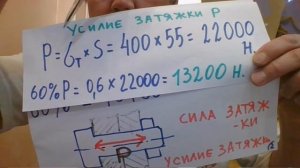 УСИЛИЕ ЗАТЯЖКИ Р
P = Gт × S = 400 × 55 = 22000 Н.
60% P = 0,6 × 22000 = 13200 Н.
СИЛА ЗАТЯЖ
-КИ
УСИЛИЕ ЗАТЯЖКИ